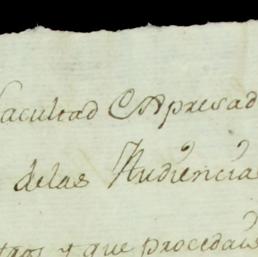 facultad Expresad
delas Audiencia
tros y que procedais